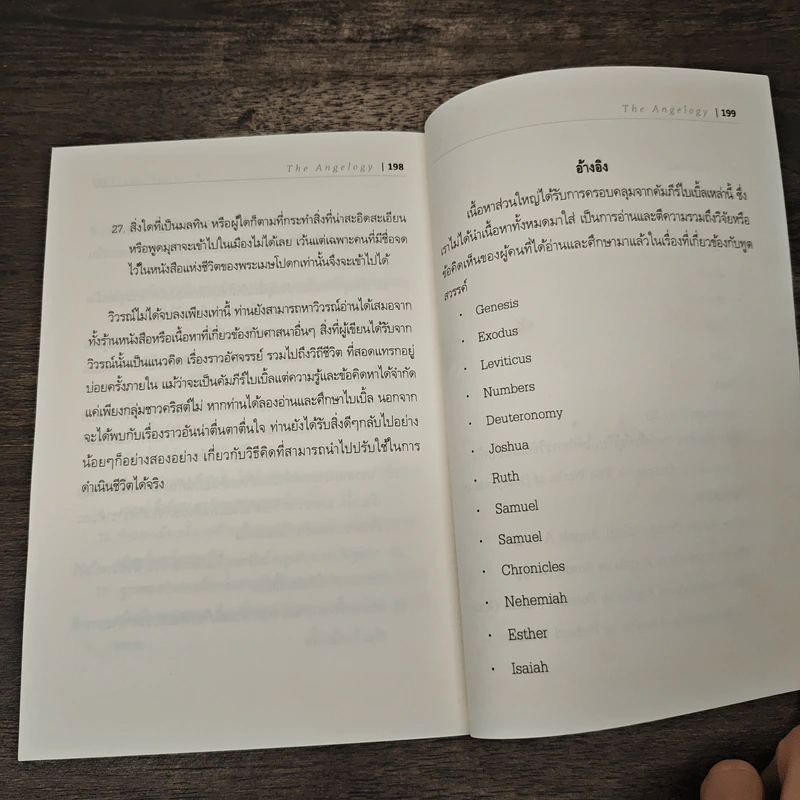 The Angelogy | 198
27. สิ่งใดที่เป็นมลทิน หรือผู้ใดก็ตามที่กระทำสิ่งที่น่าสะอิดสะเอียน
หรือพูดมุสาจะเข้าไปในเมืองไม่ได้เลย เว้นแต่เฉพาะคนที่มีชื่อจด
ไว้ในหนังสือแห่งชีวิตของพระเมษโปดกเท่านั้นจึงจะเข้าไปได้
วิวรณ์ไม่ได้จบลงเพียงเท่านี้ ท่านยังสามารถหาวิวรณ์อ่านได้เสมอจาก
ทั้งร้านหนังสือหรือเนื้อหาที่เกี่ยวข้องกับศาสนาอื่นๆ สิ่งที่ผู้เขียนได้รับจาก
วิวรณ์นั้นเป็นแนวคิด เรื่องราวอัศจรรย์ รวมไปถึงวิถีชีวิต ที่สอดแทรกอยู่
บ่อยครั้งภายใน แม้ว่าจะเป็นคัมภีร์ไบเบิ้ลแต่ความรู้และข้อคิดหาได้จำกัด
แค่เพียงกลุ่มชาวคริสต์ไม่ หากท่านได้ลองอ่านและศึกษาไบเบิ้ล นอกจาก
จะได้พบกับเรื่องราวอันน่าตื่นตาตื่นใจ ท่านยังได้รับสิ่งดีๆกลับไปอย่าง
น้อยๆก็อย่างสองอย่าง เกี่ยวกับวิธีคิดที่สามารถนำไปปรับใช้ในการ
ดำเนินชีวิตได้จริง
The Angelogy | 199
อ้างอิง
เนื้อหาส่วนใหญ่ได้รับการครอบคลุมจากคัมภีร์ไบเบิ้ลเหล่านี้ ซึ่ง
เราไม่ได้นำเนื้อหาทั้งหมดมาใส่ เป็นการอ่านและตีความรวมถึงวิจัยหรือ
ข้อคิดเห็นของผู้คนที่ได้อ่านและศึกษามาแล้วในเรื่องที่เกี่ยวข้องกับทูต
สวรรค์
• Genesis
• Exodus
• Leviticus
• Numbers
• Deuteronomy
• Joshua
• Ruth
• Samuel
• Samuel
• Chronicles
• Nehemiah
• Esther
• Isaiah